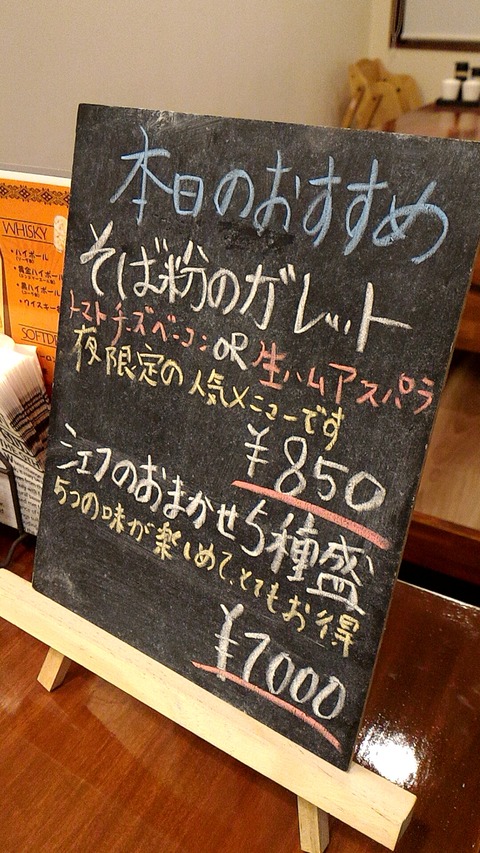 本日のおすすめ
そば粉のガレット
トマトチーズベーコン OR 生ハムアスパラ
夜限定の人気メニューです
¥850
シェフのおまかせ5種盛
5つの味が楽しめて、とてもお得
¥1000
WHISKY
・ハイボール
・黄金ハイボール
・黒ハイボール
・ウイスキー